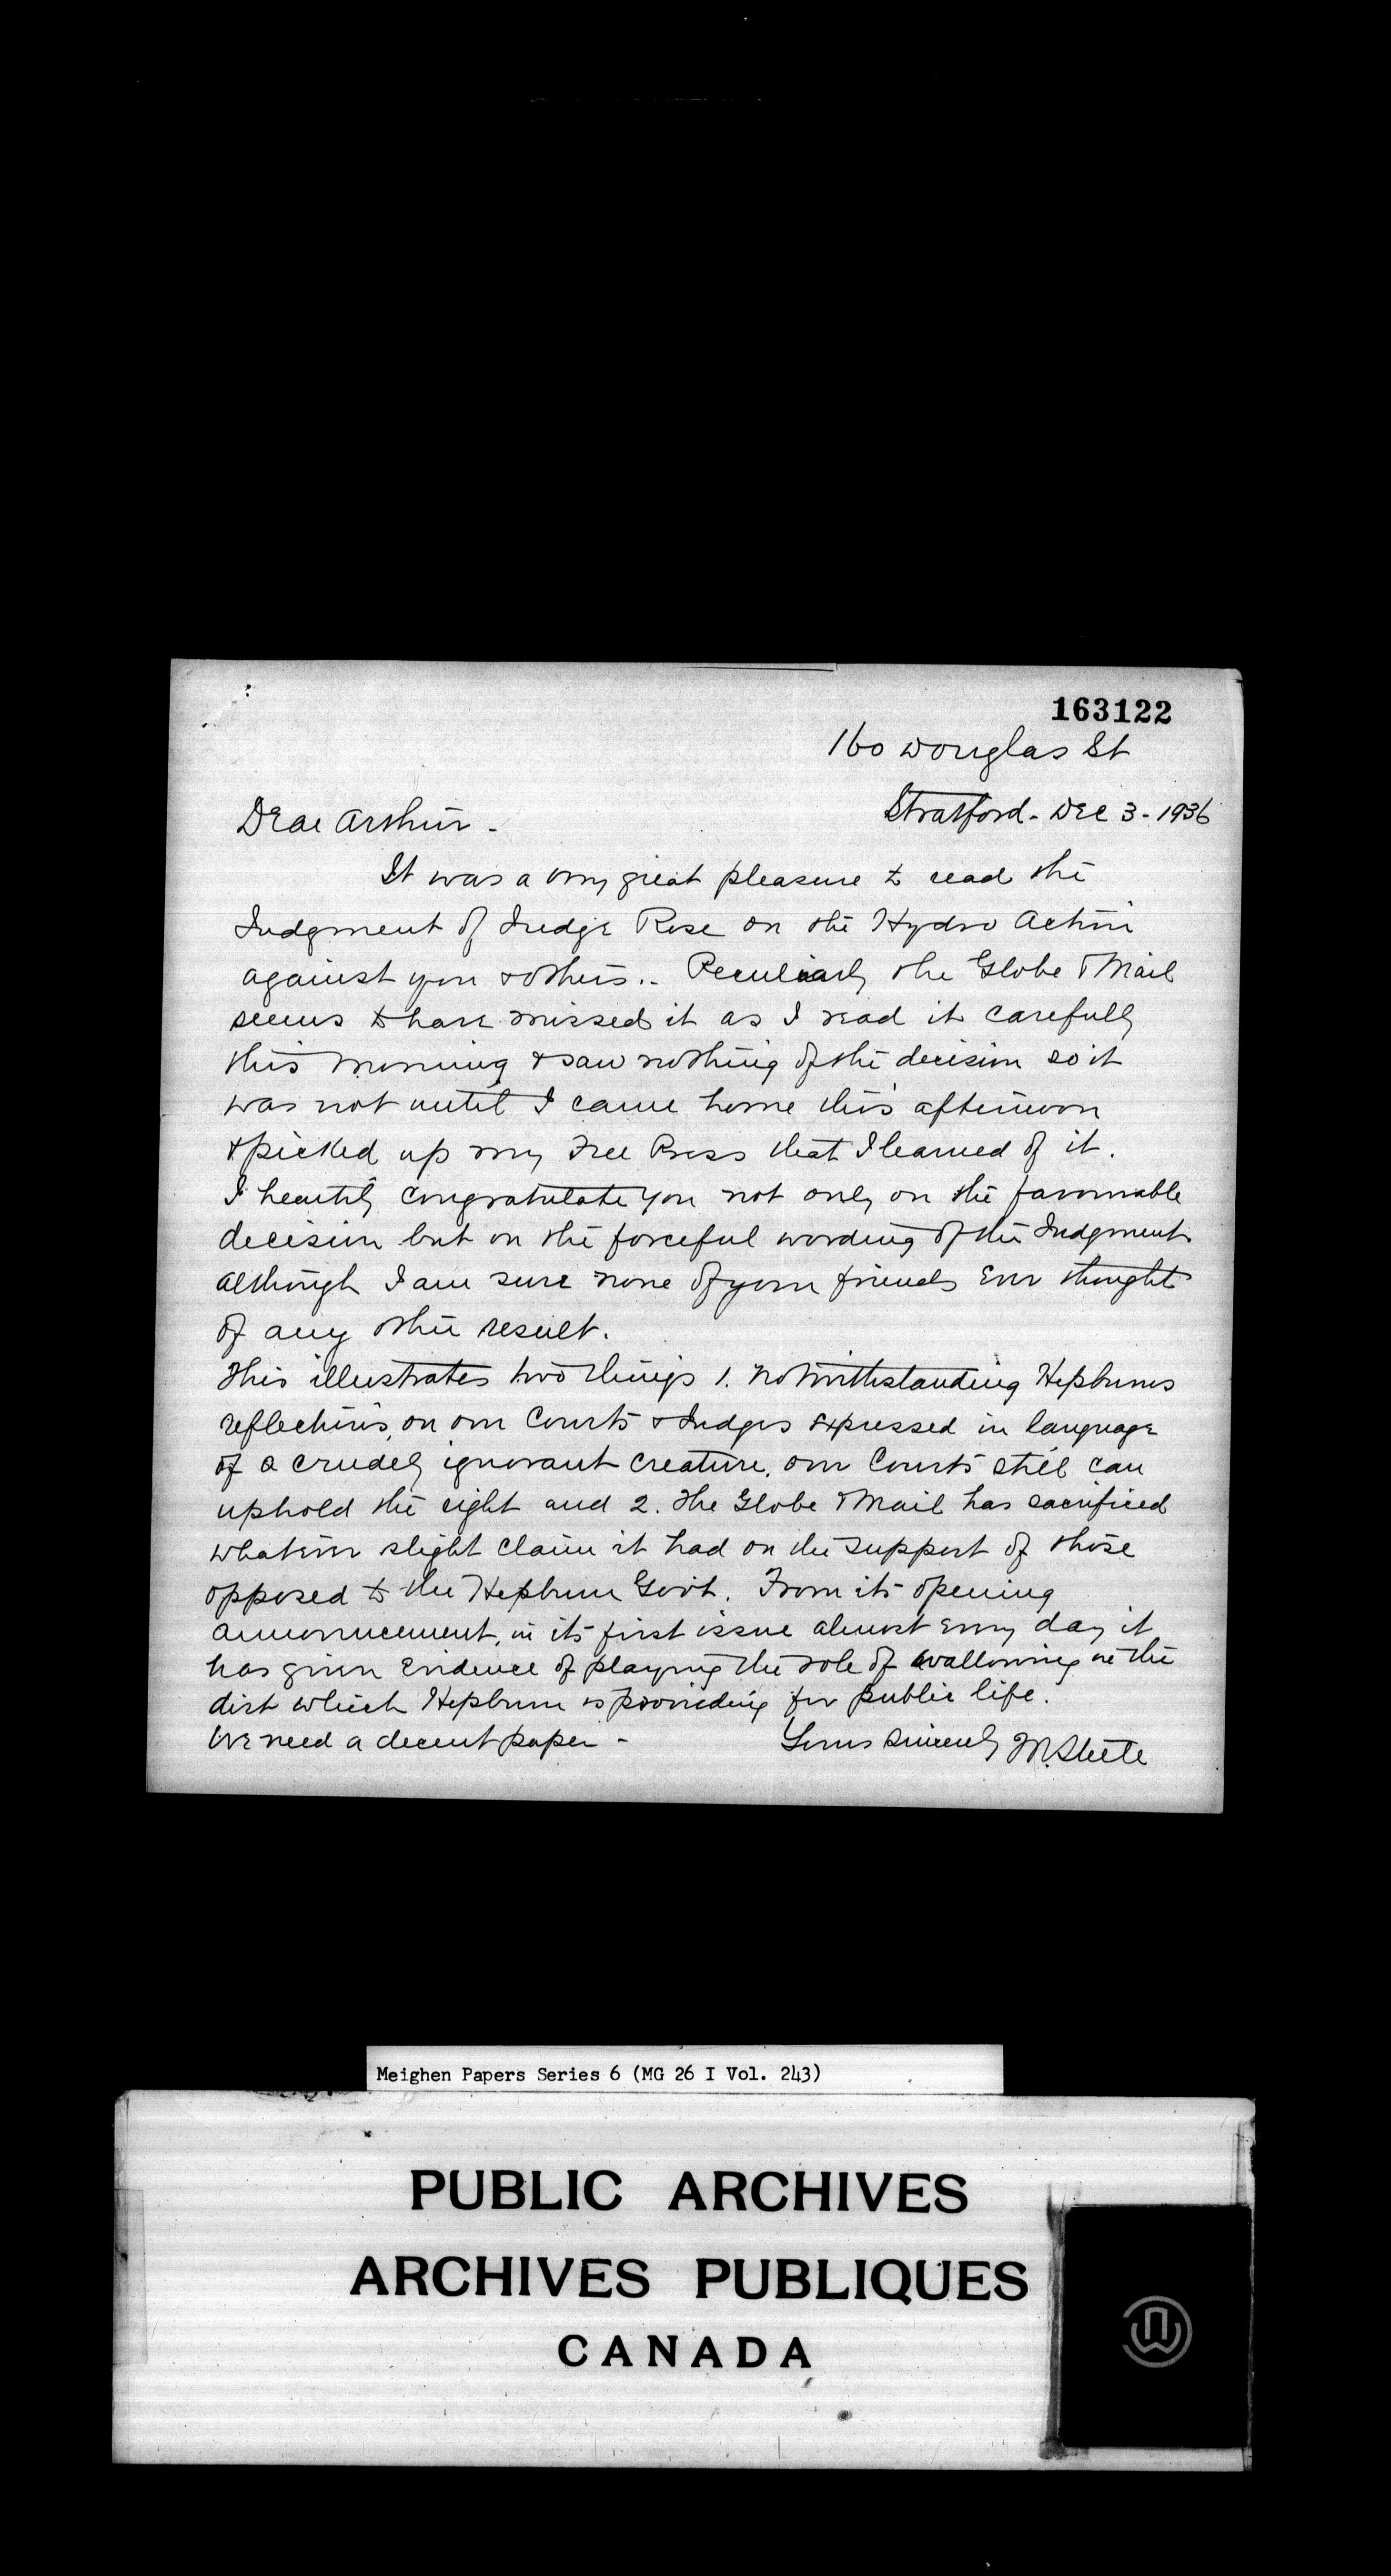 163122
160 Douglas St
Stratford - Dec 3 - 1936
Dear Arthur -
It was a very great pleasure to read the
Judgment of Judge Rose on the Hydro Action
against you & others.. Peculiarly the Globe & Mail
seems to have missed it as I read it carefully
this morning & saw nothing of the decision so it
was not until I came home this afternoon
& picked up my Free Press that I learned of it.
I heartily congratulate you not only on the favourable
decision but on the forceful wording of the Judgment
although I am sure none of your friends ever thought
of any other result.
This illustrates two things 1. Notwithstanding Hepburns
reflections, on our Courts & Judges expressed in language
of a crudely ignorant creature, our Courts still can
uphold the right and 2. The Globe & Mail has sacrificed
whatever slight claim it had on the support of those
opposed to the Hepburn Govt. From its opening
announcement, in its first issue almost every day it
has given evidence of playing the role of wallowing in the
dirt which Hepburn is providing for public life.
We need a decent paper -
Yours Sincerely M. Steele
Meighen Papers Series 6 (MG 26 I Vol. 243)
PUBLIC ARCHIVES
ARCHIVES PUBLIQUES
CANADA